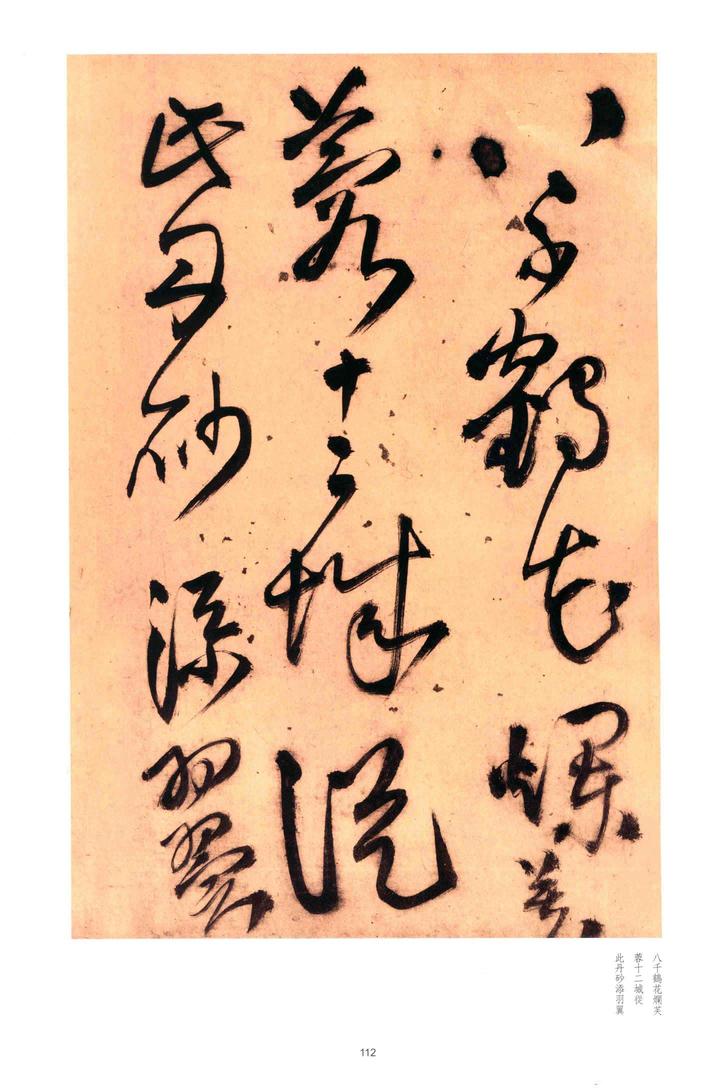 八千鶴花爛芙
蓉十二城從
此丹砂添羽翼
八千鶴花爛芙
蓉十二城從
此丹砂添羽翼
112